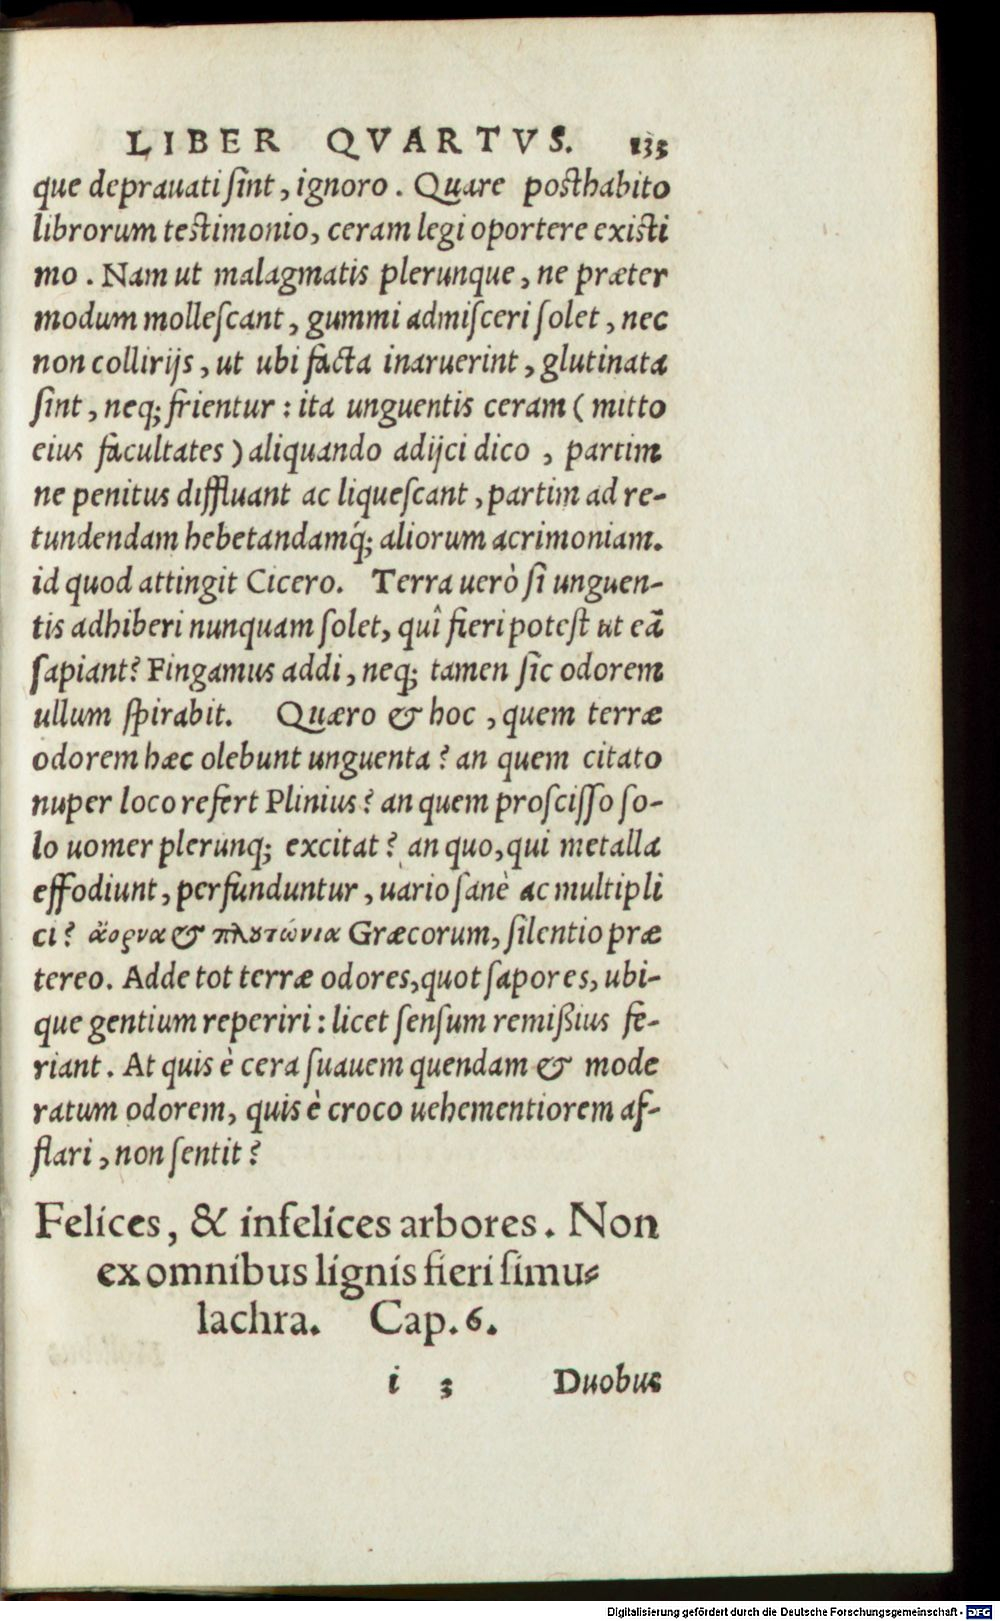 LIBER QVARTVS. 133
que deprauati ſint, ignoro. Quare posthabito
librorum testimonio, ceram legi oportere existi
mo. Nam ut malagmatis plerunque, ne præter
modum molleſcant, gummi admiſceri ſolet, nec
non collirijs, ut ubi facta inaruerint, glutinata
ſint, neq; frientur: ita unguentis ceram (mitto
eius facultates) aliquando adijci dico, partim
ne penitus diffluant ac liqueſcant, partim ad re-
tundendam hebetandamq́; aliorum acrimoniam.
id quod attingit Cicero. Terra uerò ſi unguen-
tis adhiberi nunquam ſolet, quî fieri potest ut eã
ſapiant? Fingamus addi, neq; tamen ſic odorem
ullum ſpirabit. Quæro & hoc, quem terræ
odorem hæc olebunt unguenta? an quem citato
nuper loco refert Plinius? an quem proſciſſo ſo-
lo uomer plerunq; excitat? an quo, qui metalla
effodiunt, perfunduntur, uario ſanè ac multipli
ci? ἄορνα & πλουτώνια Græcorum, ſilentio præ
tereo. Adde tot terræ odores, quot ſapores, ubi-
que gentium reperiri: licet ſenſum remißius fe-
riant. At quis è cera ſuauem quendam & mode
ratum odorem, quis è croco uehementiorem af-
flari, non ſentit?
Felices, & infelices arbores. Non
ex omnibus lignis fieri ſimu-
lachra. Cap. 6.
i 3 Duobus
Digitalisierung gefördert durch die Deutsche Forschungsgemeinschaft - DFG